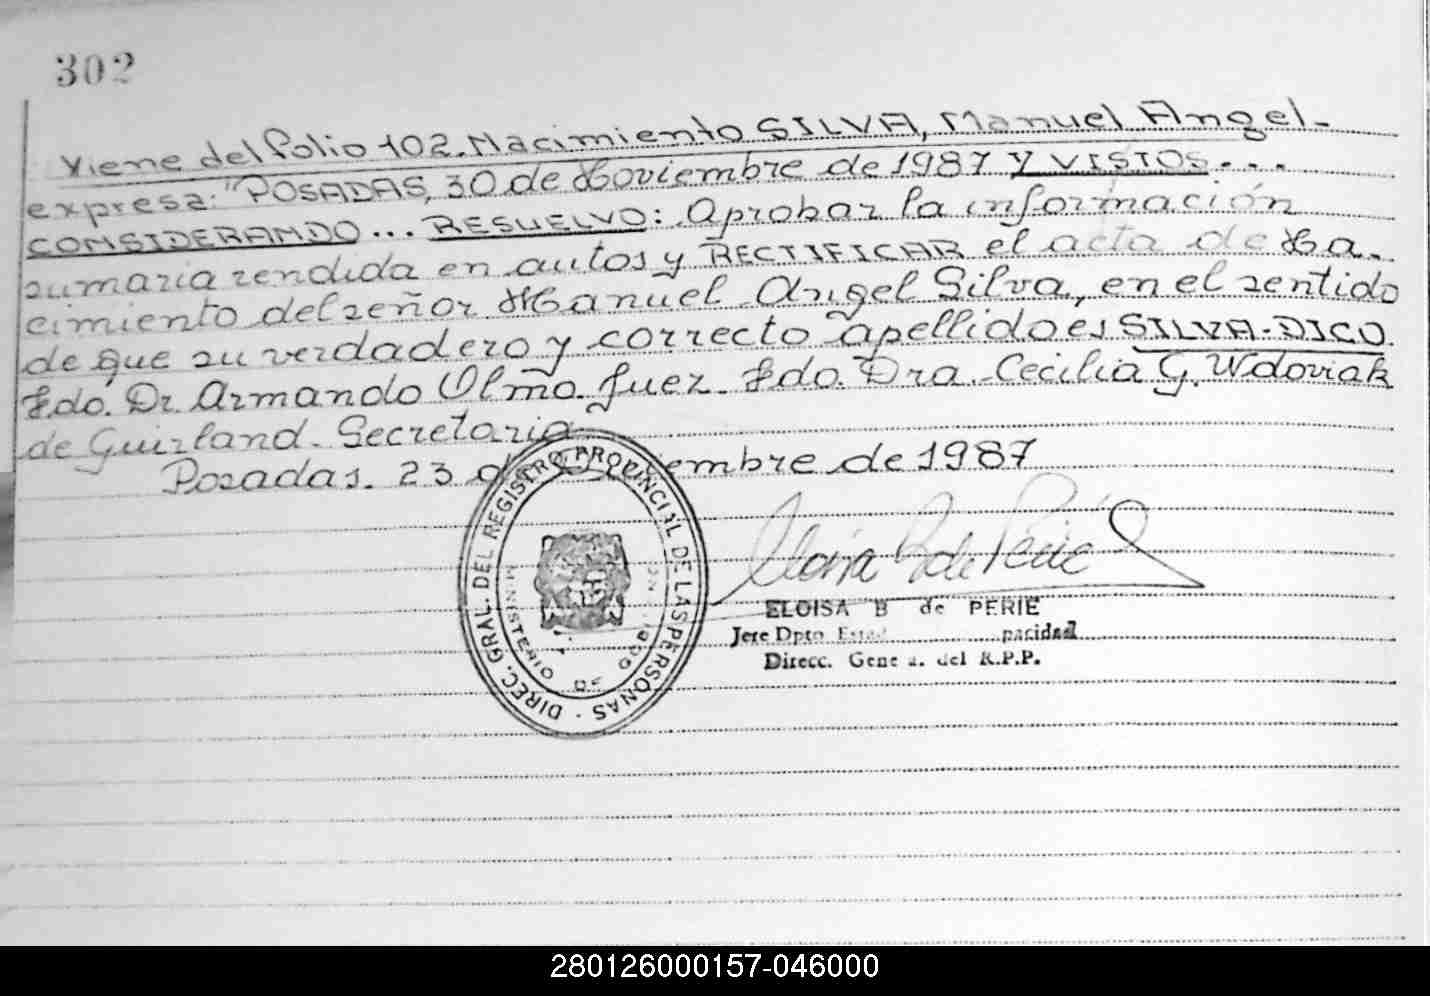 302
Viene del folio 102. Nacimiento SILVA, Manuel Angel-
expresa: "POSADAS, 30 de Noviembre de 1987 Y VISTOS...
CONSIDERANDO... RESUELVO: Aprobar la información
sumaria rendida en autos y RECTIFICAR el acta de Na.
cimiento del señor Manuel Angel Silva, en el sentido
de que su verdadero y correcto apellido es SILVA-DICO
Fdo. Dr. Armando Olmo. Juez. Fdo. Dra. Cecilia G. Wdoviak
de Guirland. Secretaria
Posadas. 23 de Diciembre de 1987
DIREC. GRAL. DEL REGISTRO PROVINCIAL DE LAS PERSONAS
MINISTERIO DE GOB
ELOISA B de PERIE
Jefe Dpto Estad pacidad
Direcc. Gene a. del R.P.P.
280126000157-046000